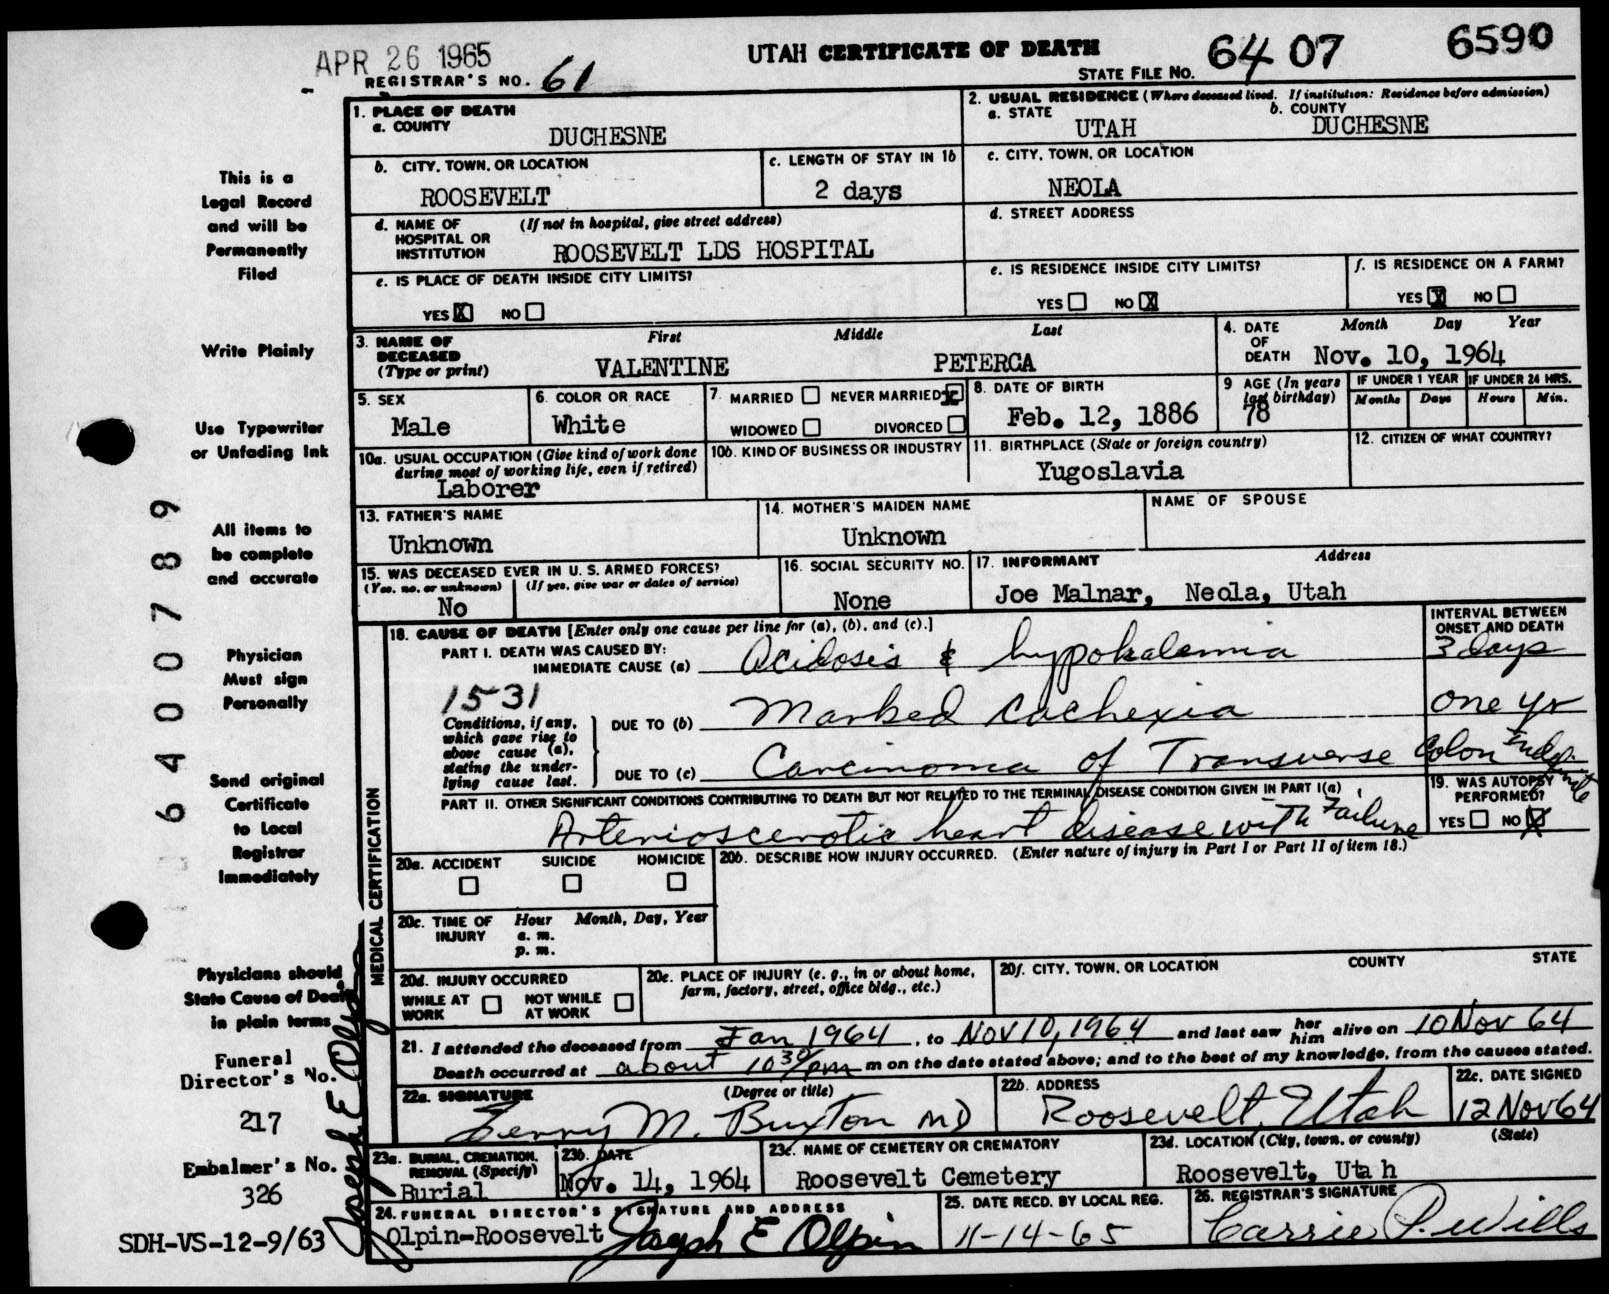 APR 26 1965
UTAH CERTIFICATE OF DEATH
64 07
6590
REGISTRAR'S NO. 61
STATE FILE NO.
1. PLACE OF DEATH
a. COUNTY
DUCHESNE
2. USUAL RESIDENCE (Where deceased lived. If institution: Residence before admission)
a. STATE
UTAH
b. COUNTY
DUCHESNE
b. CITY, TOWN, OR LOCATION
ROOSEVELT
c. LENGTH OF STAY IN 1b
2 days
c. CITY, TOWN, OR LOCATION
NEOLA
d. NAME OF HOSPITAL OR INSTITUTION
(If not in hospital, give street address)
ROOSEVELT LDS HOSPITAL
d. STREET ADDRESS
e. IS PLACE OF DEATH INSIDE CITY LIMITS?
YES X NO
e. IS RESIDENCE INSIDE CITY LIMITS?
YES NO X
f. IS RESIDENCE ON A FARM?
YES X NO
3. NAME OF DECEASED (Type or print)
First Middle Last
VALENTINE PETERCA
4. DATE OF DEATH
Month Day Year
Nov. 10, 1964
5. SEX
Male
6. COLOR OR RACE
White
7. MARRIED NEVER MARRIED X
WIDOWED DIVORCED
8. DATE OF BIRTH
Feb. 12, 1886
9 AGE (In years last birthday)
78
IF UNDER 1 YEAR
Months Days
IF UNDER 24 HRS.
Hours Min.
10a. USUAL OCCUPATION (Give kind of work done during most of working life, even if retired)
Laborer
10b. KIND OF BUSINESS OR INDUSTRY
11. BIRTHPLACE (State or foreign country)
Yugoslavia
12. CITIZEN OF WHAT COUNTRY?
13. FATHER'S NAME
Unknown
14. MOTHER'S MAIDEN NAME
Unknown
NAME OF SPOUSE
15. WAS DECEASED EVER IN U. S. ARMED FORCES?
(Yes, no, or unknown) (If yes, give war or dates of service)
No
16. SOCIAL SECURITY NO.
None
17. INFORMANT Address
Joe Malnar, Neola, Utah
MEDICAL CERTIFICATION
18. CAUSE OF DEATH [Enter only one cause per line for (a), (b), and (c).]
INTERVAL BETWEEN ONSET AND DEATH
PART I. DEATH WAS CAUSED BY:
IMMEDIATE CAUSE (a) Acidosis & hypokalemia
3 days
1531
Conditions, if any, which gave rise to above cause (a), stating the underlying cause last.
DUE TO (b) Marked cachexia
one yr
DUE TO (c) Carcinoma of Transverse Colon
Indefinite
PART II. OTHER SIGNIFICANT CONDITIONS CONTRIBUTING TO DEATH BUT NOT RELATED TO THE TERMINAL DISEASE CONDITION GIVEN IN PART I(a)
Arteriosclerotic heart disease with Failure
19. WAS AUTOPSY PERFORMED?
YES NO X
20a. ACCIDENT SUICIDE HOMICIDE
20b. DESCRIBE HOW INJURY OCCURRED. (Enter nature of injury in Part I or Part II of item 18.)
20c. TIME OF INJURY
Hour Month, Day, Year
a. m.
p. m.
20d. INJURY OCCURRED
WHILE AT WORK NOT WHILE AT WORK
20e. PLACE OF INJURY (e. g., in or about home, farm, factory, street, office bldg., etc.)
20f. CITY, TOWN, OR LOCATION COUNTY STATE
21. I attended the deceased from Jan 1964, to Nov 10, 1964 and last saw her him alive on 10 Nov 64
Death occurred at about 10 30/pm m on the date stated above; and to the best of my knowledge, from the causes stated.
22a. SIGNATURE (Degree or title)
M. Buxton MD
22b. ADDRESS
Roosevelt, Utah
22c. DATE SIGNED
12 Nov 64
23a. BURIAL, CREMATION, REMOVAL (Specify)
Burial
23b. DATE
Nov. 14, 1964
23c. NAME OF CEMETERY OR CREMATORY
Roosevelt Cemetery
23d. LOCATION (City, town, or county) (State)
Roosevelt, Utah
24. FUNERAL DIRECTOR'S SIGNATURE AND ADDRESS
Olpin-Roosevelt Joseph E Olpin
25. DATE RECD. BY LOCAL REG.
11-14-65
26. REGISTRAR'S SIGNATURE
Carrie P. Wills
This is a
Legal Record
and will be
Permanently
Filed
Write Plainly
Use Typewriter
or Unfading Ink
All items to
be complete
and accurate
Physician
Must sign
Personally
Send original
Certificate
to Local
Registrar
Immediately
Physicians should
State Cause of Death
in plain terms
Funeral
Director's No.
217
Embalmer's No.
326
SDH-VS-12-9/63
6400789
Joseph E Olpin